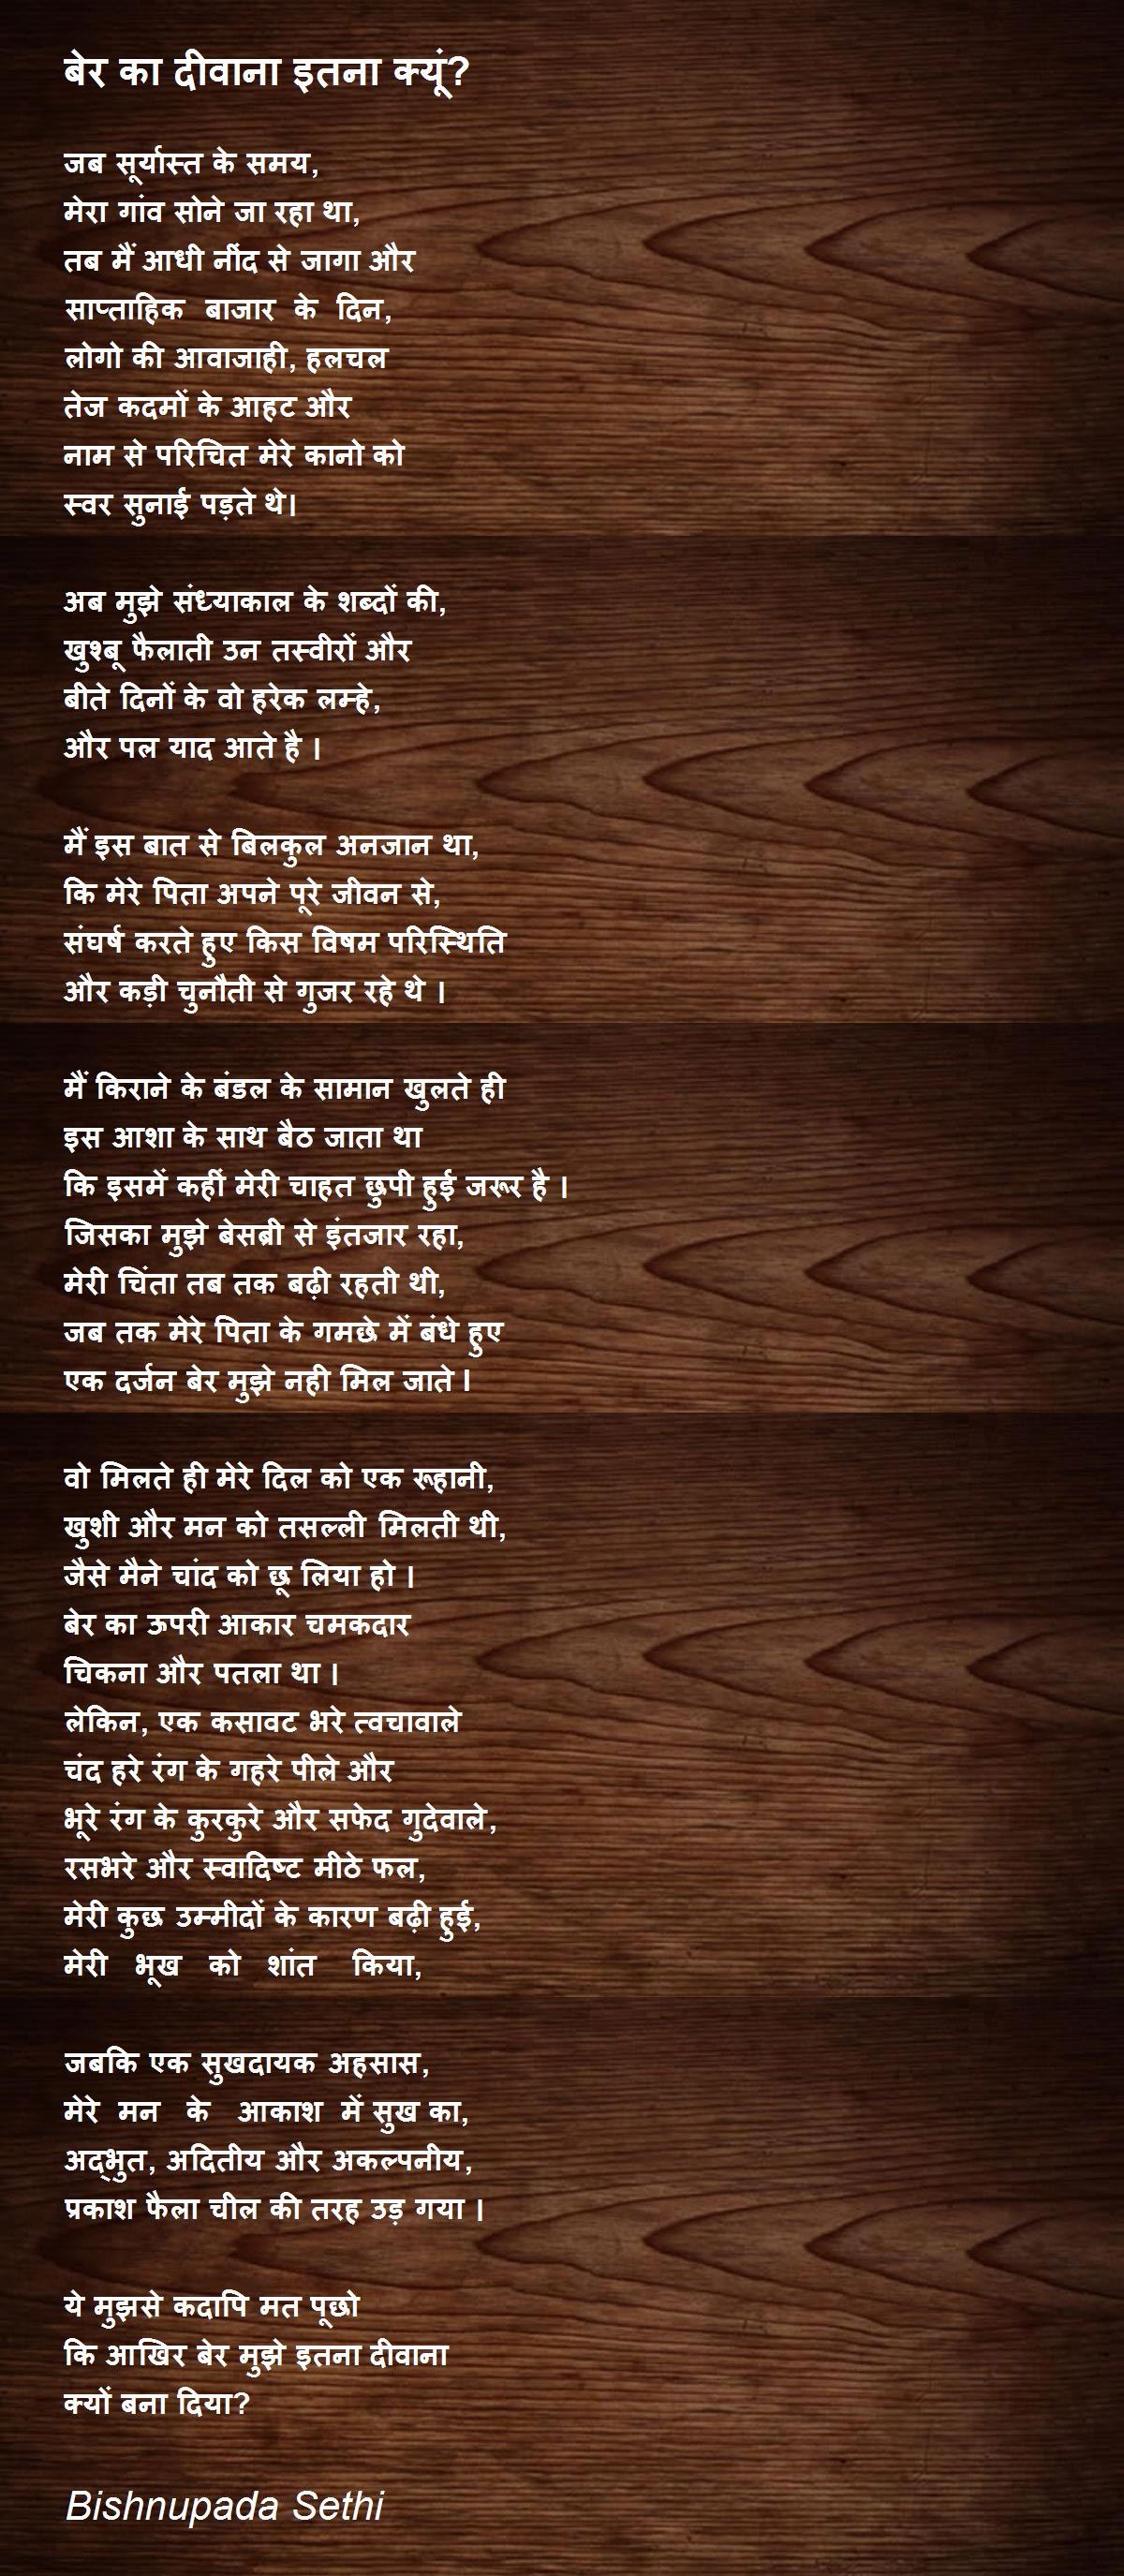 बेर का दीवाना इतना क्यूं?
जब सूर्यास्त के समय,
मेरा गांव सोने जा रहा था,
तब मैं आधी नींद से जागा और
साप्ताहिक बाजार के दिन,
लोगो की आवाजाही, हलचल
तेज कदमों के आहट और
नाम से परिचित मेरे कानो को
स्वर सुनाई पड़ते थे।
अब मुझे संध्याकाल के शब्दों की,
खुश्बू फैलाती उन तस्वीरों और
बीते दिनों के वो हरेक लम्हे,
और पल याद आते है ।
मैं इस बात से बिलकुल अनजान था,
कि मेरे पिता अपने पूरे जीवन से,
संघर्ष करते हुए किस विषम परिस्थिति
और कड़ी चुनौती से गुजर रहे थे ।
मैं किराने के बंडल के सामान खुलते ही
इस आशा के साथ बैठ जाता था
कि इसमें कहीं मेरी चाहत छुपी हुई जरूर है ।
जिसका मुझे बेसब्री से इंतजार रहा,
मेरी चिंता तब तक बढ़ी रहती थी,
जब तक मेरे पिता के गमछे में बंधे हुए
एक दर्जन बेर मुझे नही मिल जाते l
वो मिलते ही मेरे दिल को एक रूहानी,
खुशी और मन को तसल्ली मिलती थी,
जैसे मैने चांद को छू लिया हो ।
बेर का ऊपरी आकार चमकदार
चिकना और पतला था ।
लेकिन, एक कसावट भरे त्वचावाले
चंद हरे रंग के गहरे पीले और
भूरे रंग के कुरकुरे और सफेद गुदेवाले,
रसभरे और स्वादिष्ट मीठे फल,
मेरी कुछ उम्मीदों के कारण बढ़ी हुई,
मेरी भूख को शांत किया,
जबकि एक सुखदायक अहसास,
मेरे मन के आकाश में सुख का,
अद्भुत, अदितीय और अकल्पनीय,
प्रकाश फैला चील की तरह उड़ गया ।
ये मुझसे कदापि मत पूछो
कि आखिर बेर मुझे इतना दीवाना
क्यों बना दिया?
Bishnupada Sethi